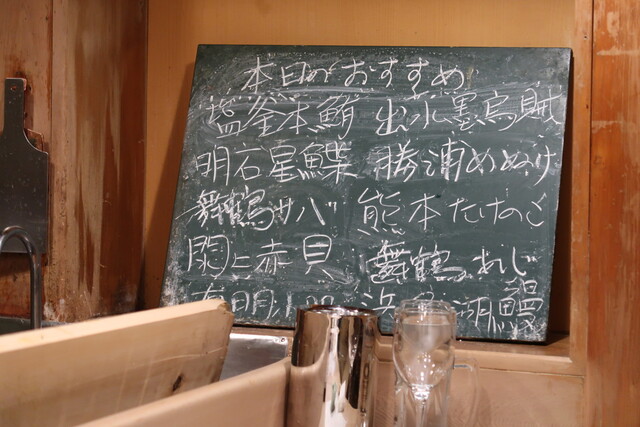 本日のおすすめ
塩釜本鮪 出水墨烏賊
明石星鰈 勝浦めぬけ
舞鶴サバ 熊本たけのこ
閖上赤貝 舞鶴あじ
有明 浜名湖鰻